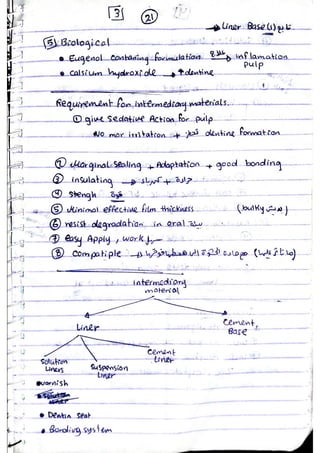 3
21
Liner Base(1) تابع
5 Biological
• Eugenol containing formulation علاج Inflamation pulp
• calsium hydroxide → ↑ dentine
Requirement for intermediary materials.
① give Sedative Action for pulp
No mor irritation + dentine formation
② Marginal Sealing + Adaptation + good bonding
③ insulating → حرارة + كهرباء
④ stengh قوة
⑤ Minimal effective film thickness (bulky مش)
⑥ resist degradation in oral بيئة
⑦ easy Apply, work
⑧ Compatiple
intermediary material
Liner
Cement, Base
Solution Liners
Suspension Liner
Cement Liner
• varnish
• Dentin Seal
• Bonding system